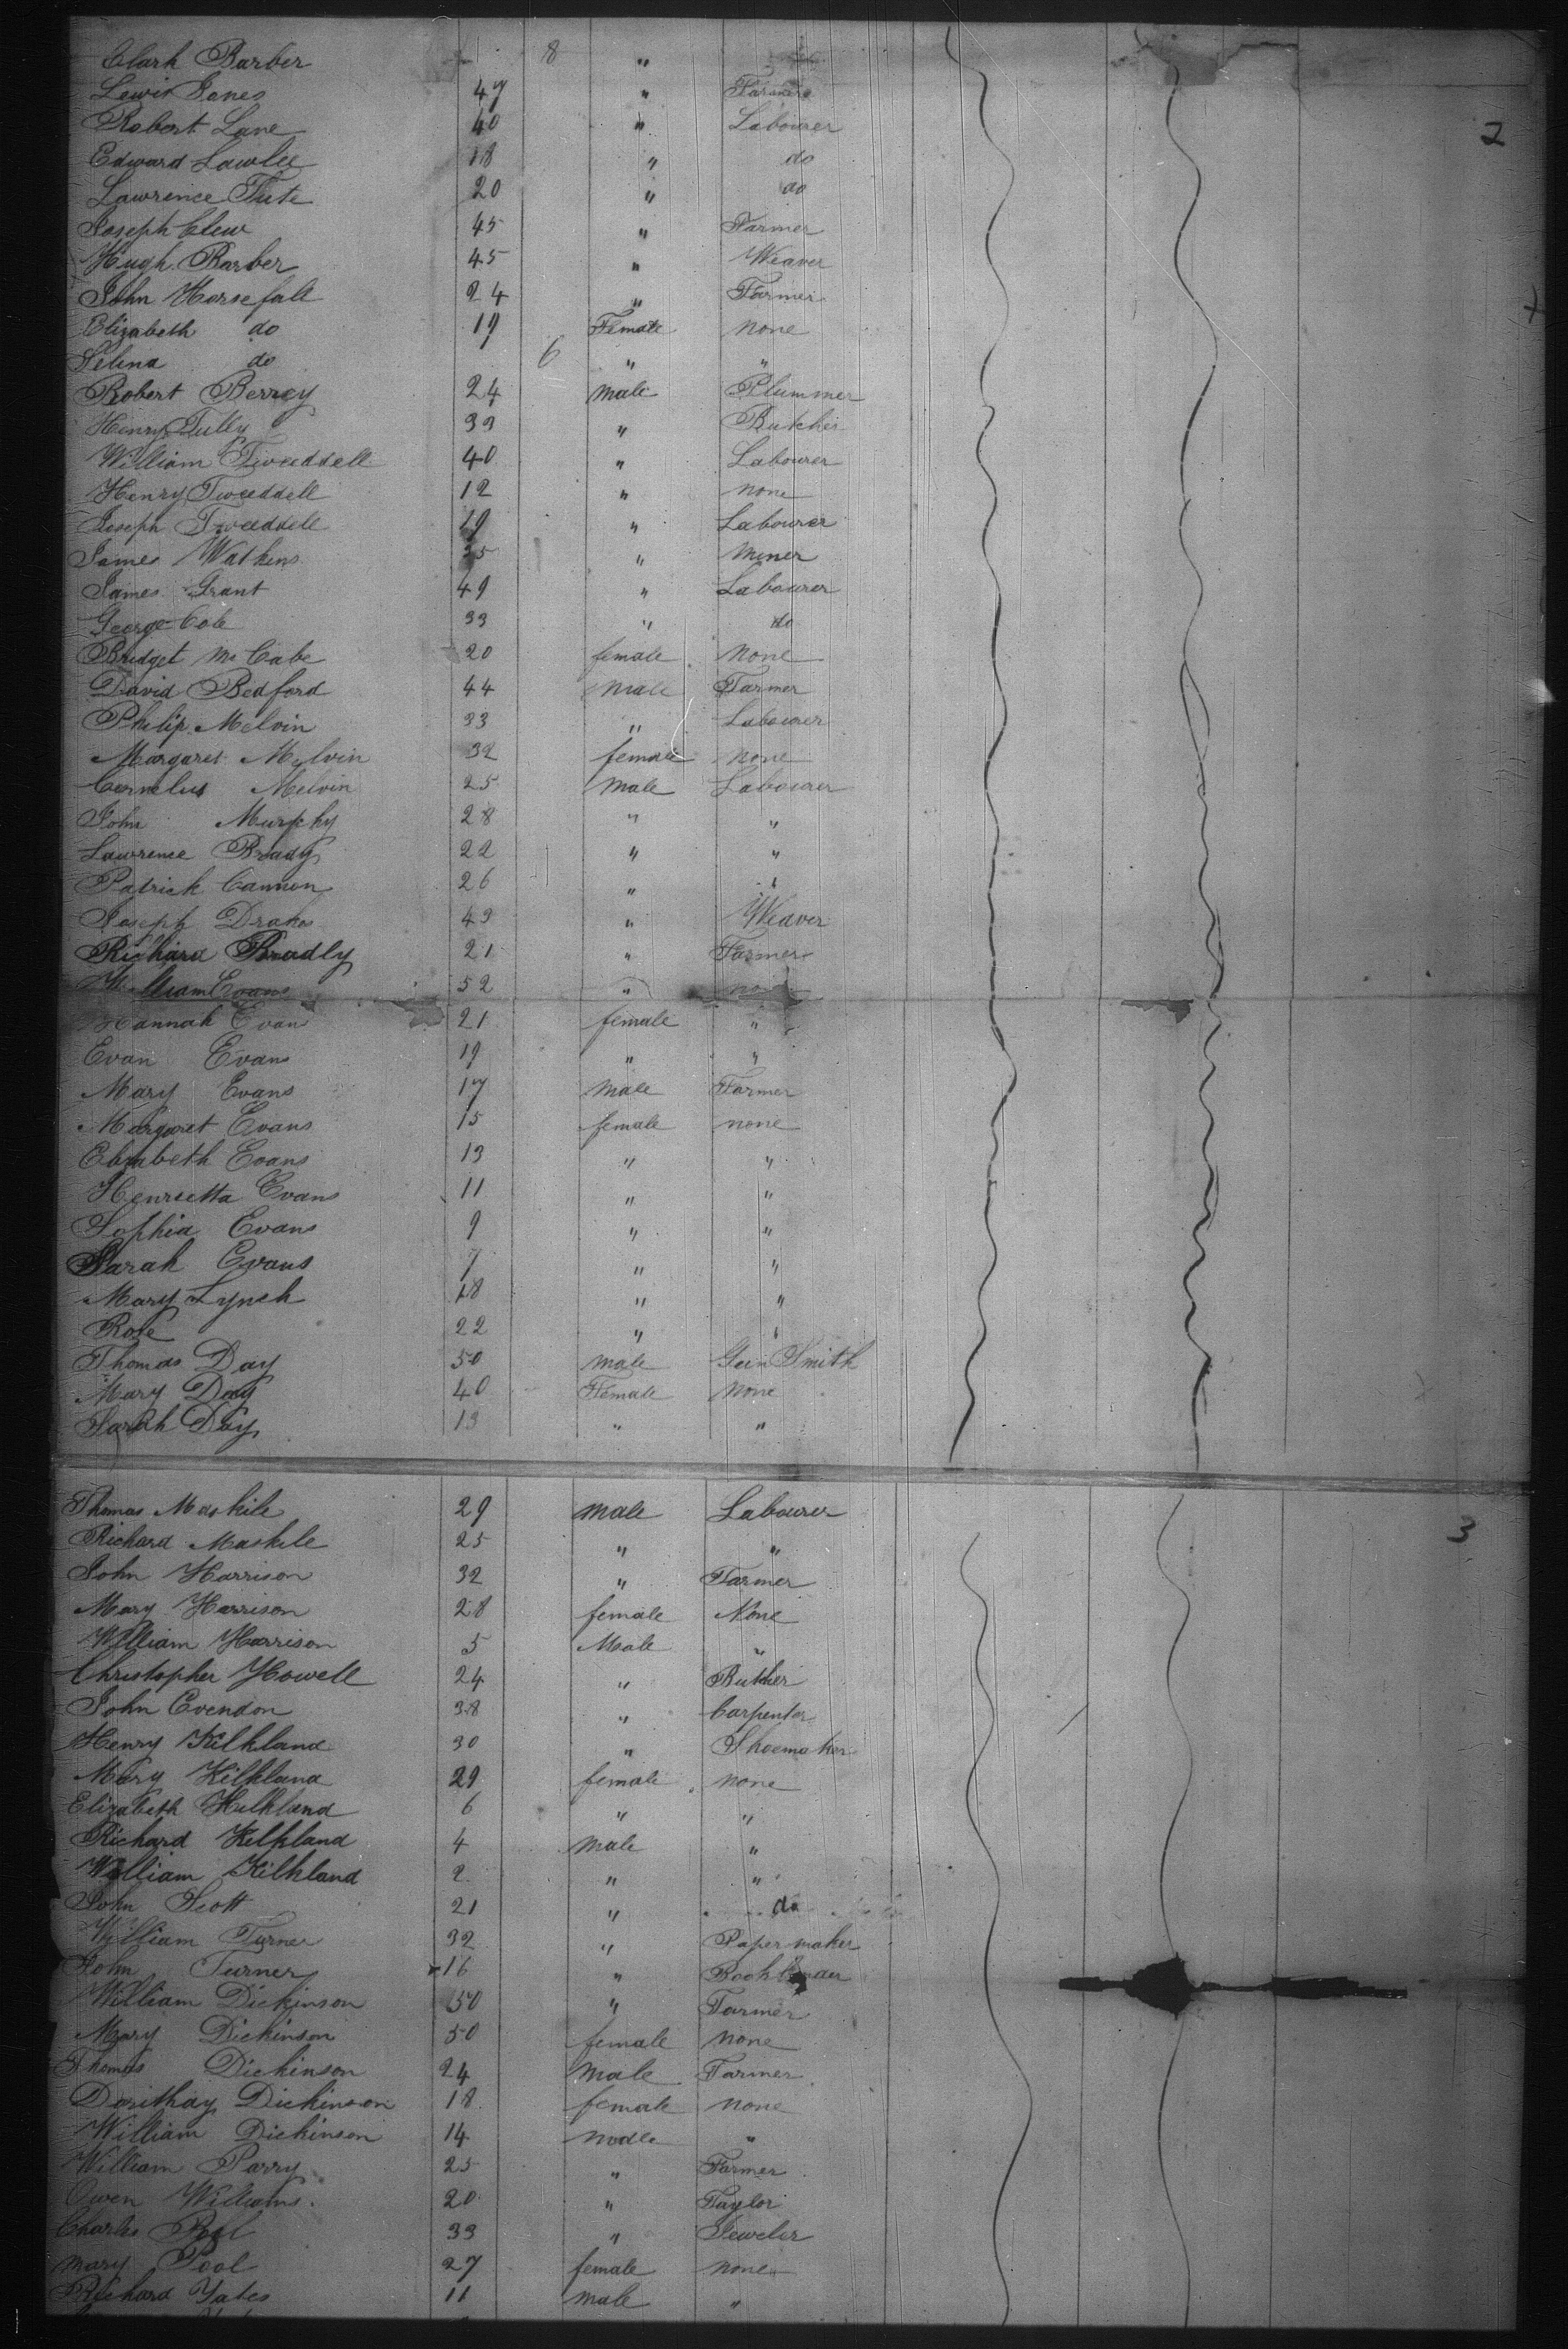 Clark Barber 8 "
Lewis Janes 47 " Farmer
Robert Lane 40 " Labourer 2
Edward Lawlee 18 " do
Lawrence Tute 20 " do
Joseph Clew 45 " Farmer
Hugh Barber 45 " Weaver
John Horsefall 24 " Farmer
Elizabeth do 19 Female none
Selina do 6 " "
Robert Berrey 24 male Plummer
Henry Tully 33 " Butcher
William Tweeddell 40 " Labourer
Henry Tweeddell 12 " none
Joseph Tweeddell 19 " Labourer
James Watkins 35 " Miner
James Grant 49 " Labourer
George Cole 33 " do
Bridget Mc Cabe 20 female none
David Bedford 44 male Farmer
Philip Melvin 33 " Labourer
Margaret Melvin 32 female none
Cornelus Melvin 25 male Labourer
John Murphy 28 " "
Lawrence Brady 22 " "
Patrick Cannon 26 " "
Joseph Drake 43 " Weaver
Richard Bradly 21 " Farmer
William Evans 52 " none
Hannah Evan 21 female "
Evan Evans 19 " "
Mary Evans 17 male Farmer
Margaret Evans 15 female none
Elizabeth Evans 13 " "
Henrietta Evans 11 " "
Sophia Evans 9 " "
Sarah Evans 7 " "
Mary Lynch 18 " "
Rose 22 " "
Thomas Day 50 male Gun Smith
Mary Day 40 Female none
Sarah Day 13 " "
Thomas Maskile 29 male Labourer
Richard Maskile 25 " " 3
John Harrison 32 " Farmer
Mary Harrison 28 female None
William Harrison 5 Male "
Christopher Howell 24 " Butcher
John Evendon 38 " Carpenter
Henry Kilkland 30 " Shoemaker
Mary Kilkland 29 female none
Elizabeth Kilkland 6 " "
Richard Kilkland 4 male "
William Kilkland 2 " "
John Scott 21 " do
William Turner 32 " Paper maker
John Turner 16 " Bookbinder
William Dickinson 50 " Farmer
Mary Dickinson 50 female none
Thomas Dickinson 24 Male Farmer
Dorithay Dickinson 18 female none
William Dickinson 14 male "
William Parry 25 " Farmer
Owen Williams 20 " Taylor
Charles Pool 33 " Jeweler
Mary Pool 27 female none
Richard Yates 11 male "